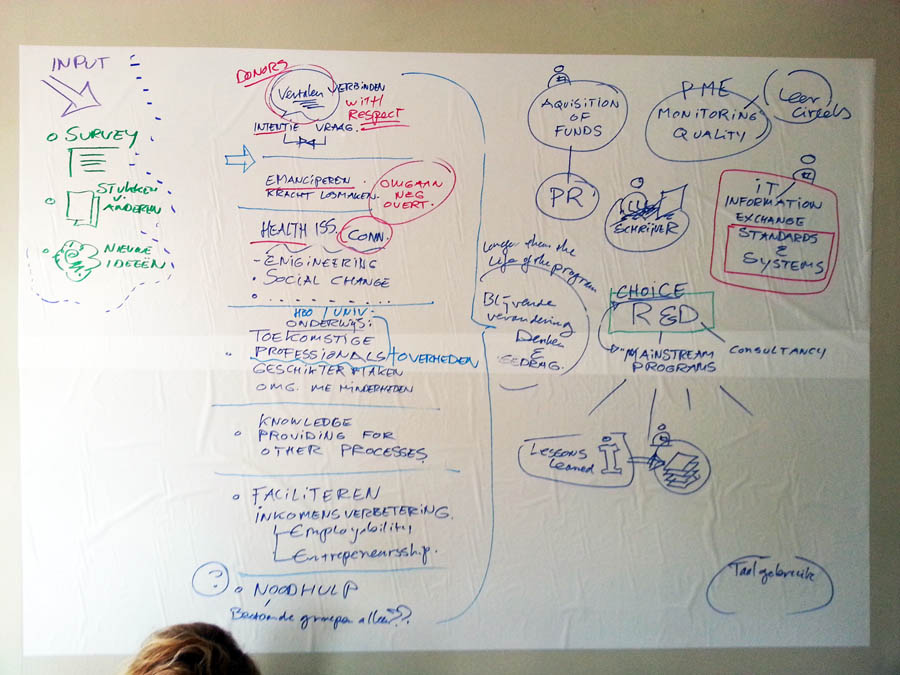 INPUT
SURVEY
STUKKEN
V.
ANDEREN
NIEUWE
IDEEËN
DONORS
Vertalen VERBINDEN
WITH
RESPECT
INTENTIE VRAAG.
EMANCIPEREN
KRACHT LOSMAKEN.
OMGAAN
NEG
OVERT.
HEALTH ISS. CONN.
- ENGINEERING
• SOCIAL CHANGE
HBO / UNIV.
ONDERWIJS:
TOEKOMSTIGE
• PROFESSIONALS + OVERHEDEN
GESCHIKTER MAKEN
OMG. ME MINDERHEDEN
KNOWLEDGE
• PROVIDING FOR
OTHER PROCESSES.
• FACILITEREN
INKOMENSVERBETERING.
Employability
Entrepeneursship.
? • NOODHULP
groepen alleen??
Longer then the
life of the program
Blijvende
verandering
Denken
&
GEDRAG.
AQUISITION
OF
FUNDS
PR.
PME
MONITORING
QUALITY
Leer
Circels
SCHRIJVER
IT
INFORMATION
EXCHANGE
STANDARDS
&
SYSTEMS
CHOICE
R&D
MAINSTREAM
PROGRAMS
CONSULTANCY
LESSONS
Learned
Taalgebruik